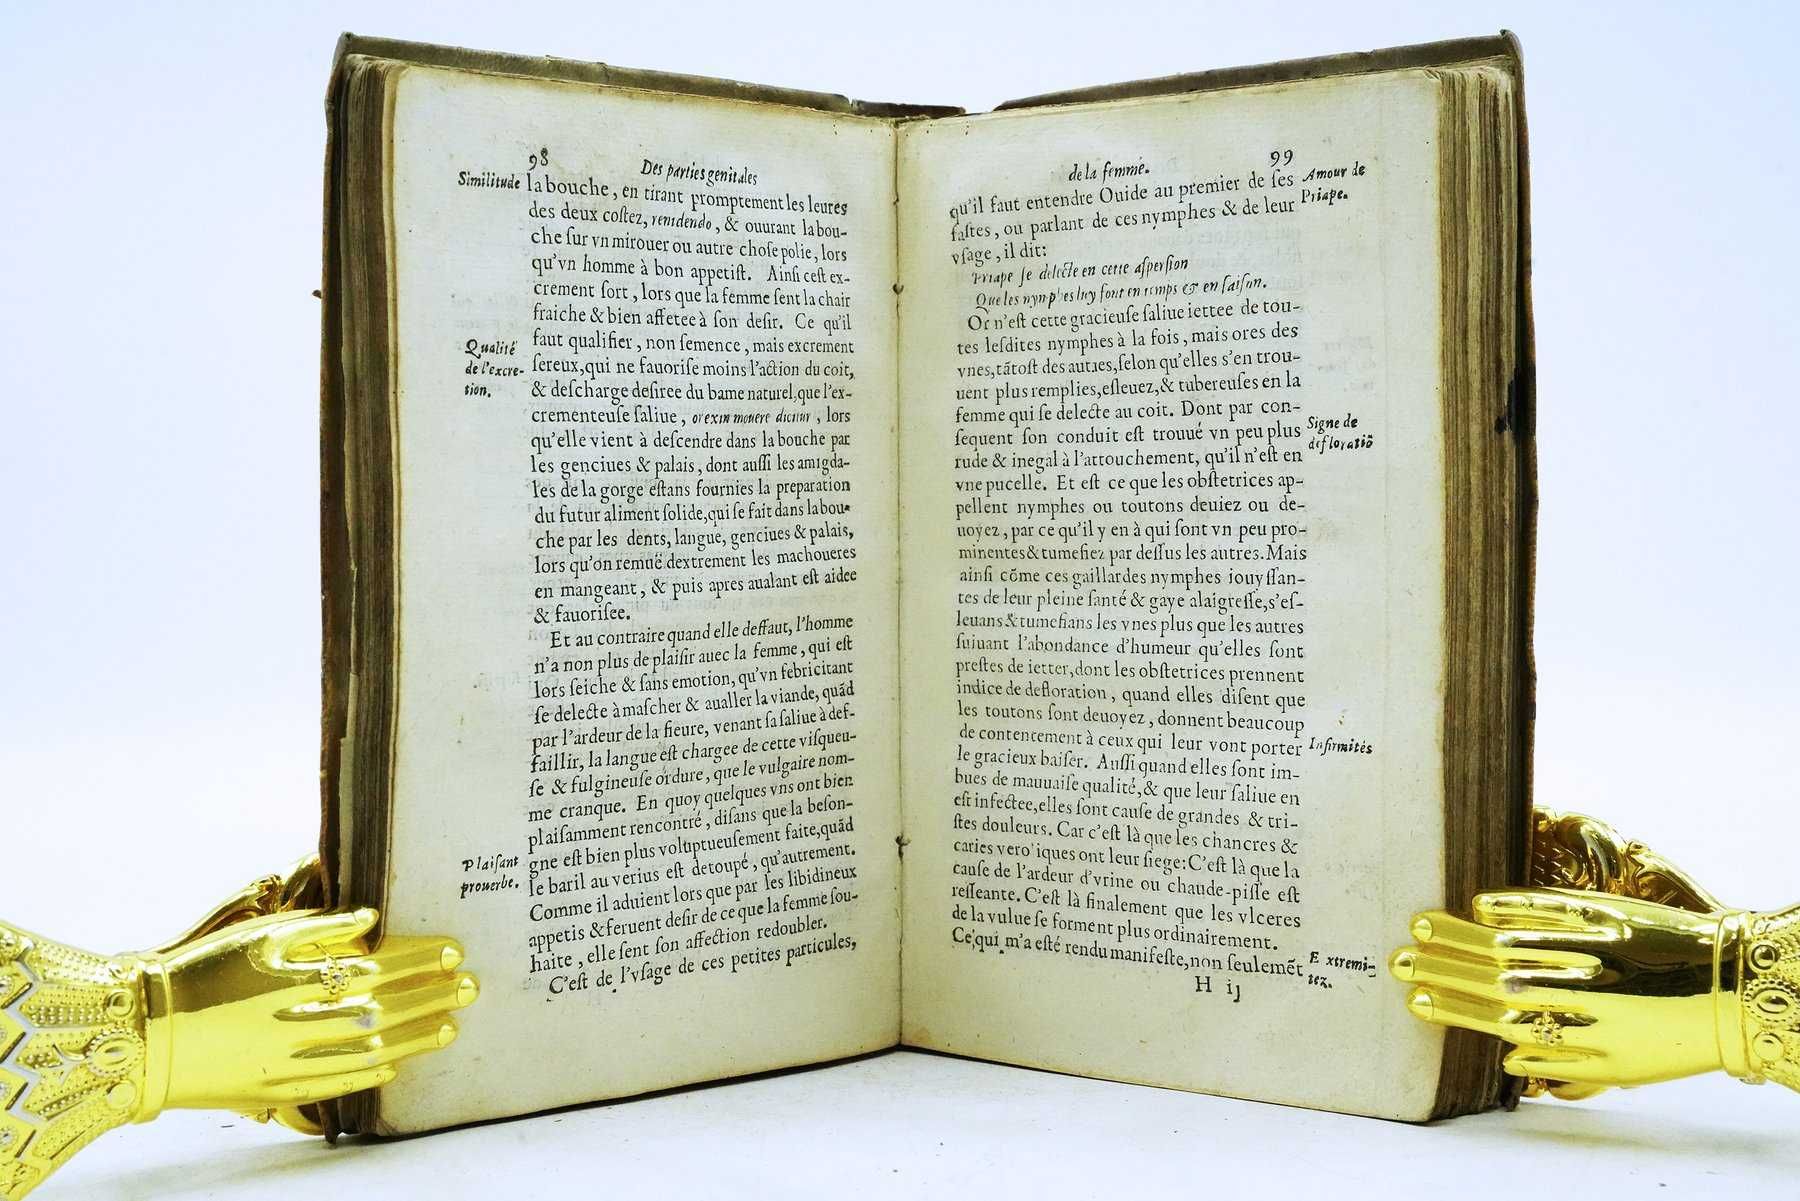 98
Des parties genitales
Similitude
la bouche, en tirant promptement les leures
des deux costez, renidendo, & ouurant la bou-
che sur vn mirouer ou autre chose polie, lors
qu'vn homme à bon appetist. Ainsi cest ex-
crement sort, lors que la femme sent la chair
fraiche & bien affetee à son desir. Ce qu'il
Qualité
de l'excre-
tion.
faut qualifier, non semence, mais excrement
sereux, qui ne fauorise moins l'action du coit,
& descharge desiree du bame naturel, que l'ex-
crementeuse saliue, orexin mouere dicitur, lors
qu'elle vient à descendre dans la bouche par
les genciues & palais, dont aussi les amigda-
les de la gorge estans fournies la preparation
du futur aliment solide, qui se fait dans la bou-
che par les dents, langue, genciues & palais,
lors qu'on remuë dextrement les machoueres
en mangeant, & puis apres aualant est aidee
& fauorisee.
Et au contraire quand elle deffaut, l'homme
n'a non plus de plaisir auec la femme, qui est
lors seiche & sans emotion, qu'vn febricitant
se delecte à mascher & aualler la viande, quãd
par l'ardeur de la fieure, venant sa saliue à def-
faillir, la langue est chargee de cette visqueu-
se & fulgineuse ordure, que le vulgaire nom-
me cranque. En quoy quelques vns ont bien
plaisamment rencontré, disans que la beson-
Plaisant
prouerbe.
gne est bien plus voluptueusement faite, quãd
le baril au verius est detoupé, qu'autrement.
Comme il aduient lors que par les libidineux
appetis & feruent desir de ce que la femme sou-
haite, elle sent son affection redoubler.
C'est de l'vsage de ces petites particules,
de la femme.
99
Amour de
Priape.
qu'il faut entendre Ouide au premier de ses
fastes, ou parlant de ces nymphes & de leur
vsage, il dit:
Priape se delecte en cette aspersion
Que les nymphes luy font en temps & en saison.
Or n'est cette gracieuse saliue iettee de tou-
tes lesdites nymphes à la fois, mais ores des
vnes, tãtost des autres, selon qu'elles s'en trou-
uent plus remplies, esleuez, & tubereuses en la
femme qui se delecte au coit. Dont par con-
Signe de
defloratiõ
sequent son conduit est trouué vn peu plus
rude & inegal à l'attouchement, qu'il n'est en
vne pucelle. Et est ce que les obstetrices ap-
pellent nymphes ou toutons deuiez ou de-
uoyez, par ce qu'il y en à qui sont vn peu pro-
minentes & tumefiez par dessus les autres. Mais
ainsi cõme ces gaillardes nymphes iouyssan-
tes de leur pleine santé & gaye alaigresse, s'es-
leuans & tumefians les vnes plus que les autres
suiuant l'abondance d'humeur qu'elles sont
prestes de ietter, dont les obstetrices prennent
indice de defloration, quand elles disent que
les toutons sont deuoyez, donnent beaucoup
de contentement à ceux qui leur vont porter
Infirmités
le gracieux baiser. Aussi quand elles sont im-
bues de mauuaise qualité, & que leur saliue en
est infectee, elles sont cause de grandes & tri-
stes douleurs. Car c'est là que les chancres &
caries veroliques ont leur siege: C'est là que la
cause de l'ardeur d'vrine ou chaude-pisse est
resseante. C'est là finalement que les vlceres
de la vulue se forment plus ordinairement.
Ce qui m'a esté rendu manifeste, non seulemẽt
Extremi-
tez.
H ij